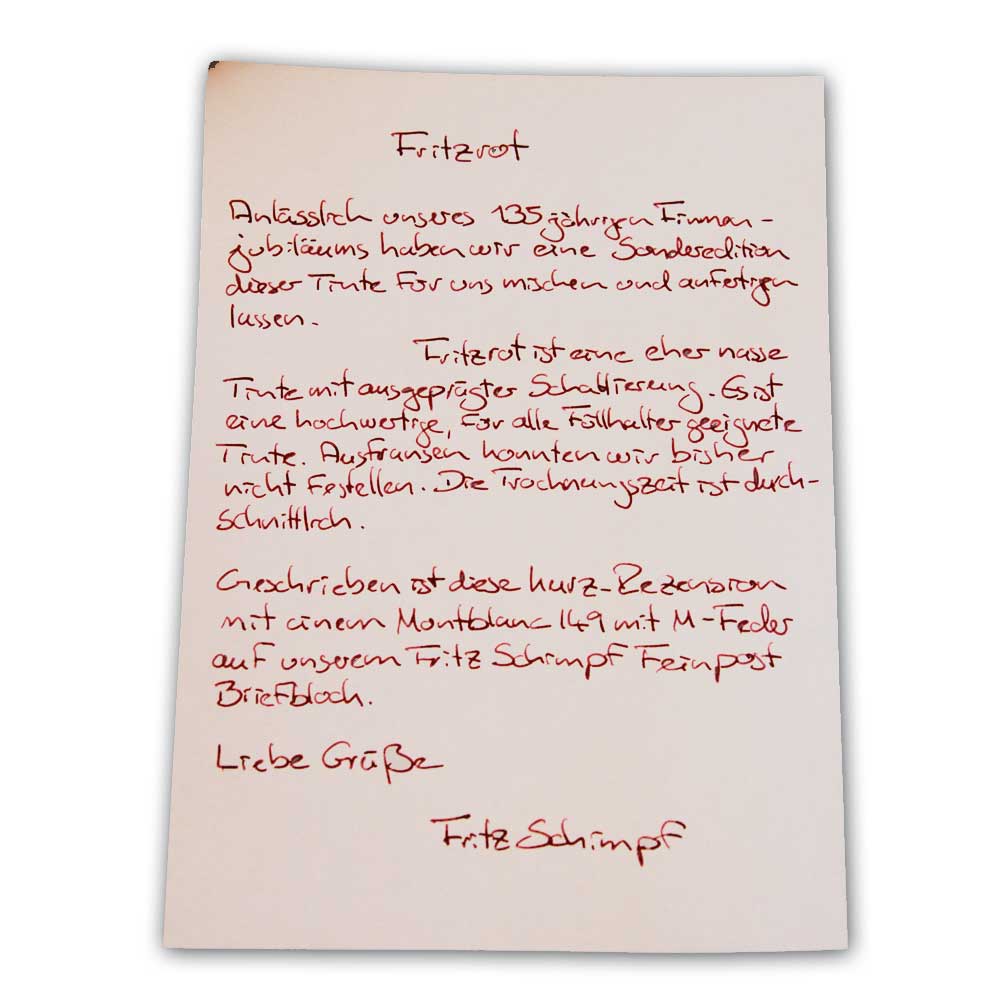 Fritzrot
Anlässlich unseres 135 jährigen Firmen-
jubiläums haben wir eine Sonderedition
dieser Tinte für uns mischen und anfertigen
lassen.
Fritzrot ist eine eher nasse
Tinte mit ausgeprägter Schattierung. Es ist
eine hochwertige, für alle Füllhalter geeignete
Tinte. Ausfransen konnten wir bisher
nicht festellen. Die Trocknungszeit ist durch-
schnittlich.
Geschrieben ist diese Kurz-Rezension
mit einem Montblanc 149 mit M-Feder
auf unserem Fritz Schimpf Feinpost
Briefblock.
Liebe Grüße
Fritz Schimpf